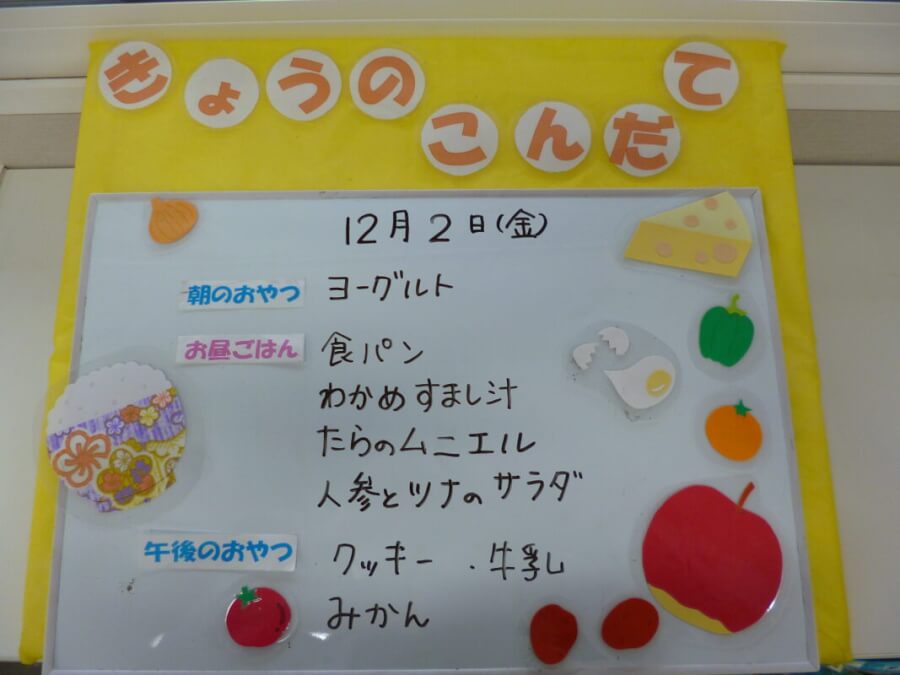 きょうの
こんだて
12月2日(金)
朝のおやつ ヨーグルト
お昼ごはん 食パン
わかめすまし汁
たらのムニエル
人参とツナのサラダ
午後のおやつ クッキー・牛乳
みかん